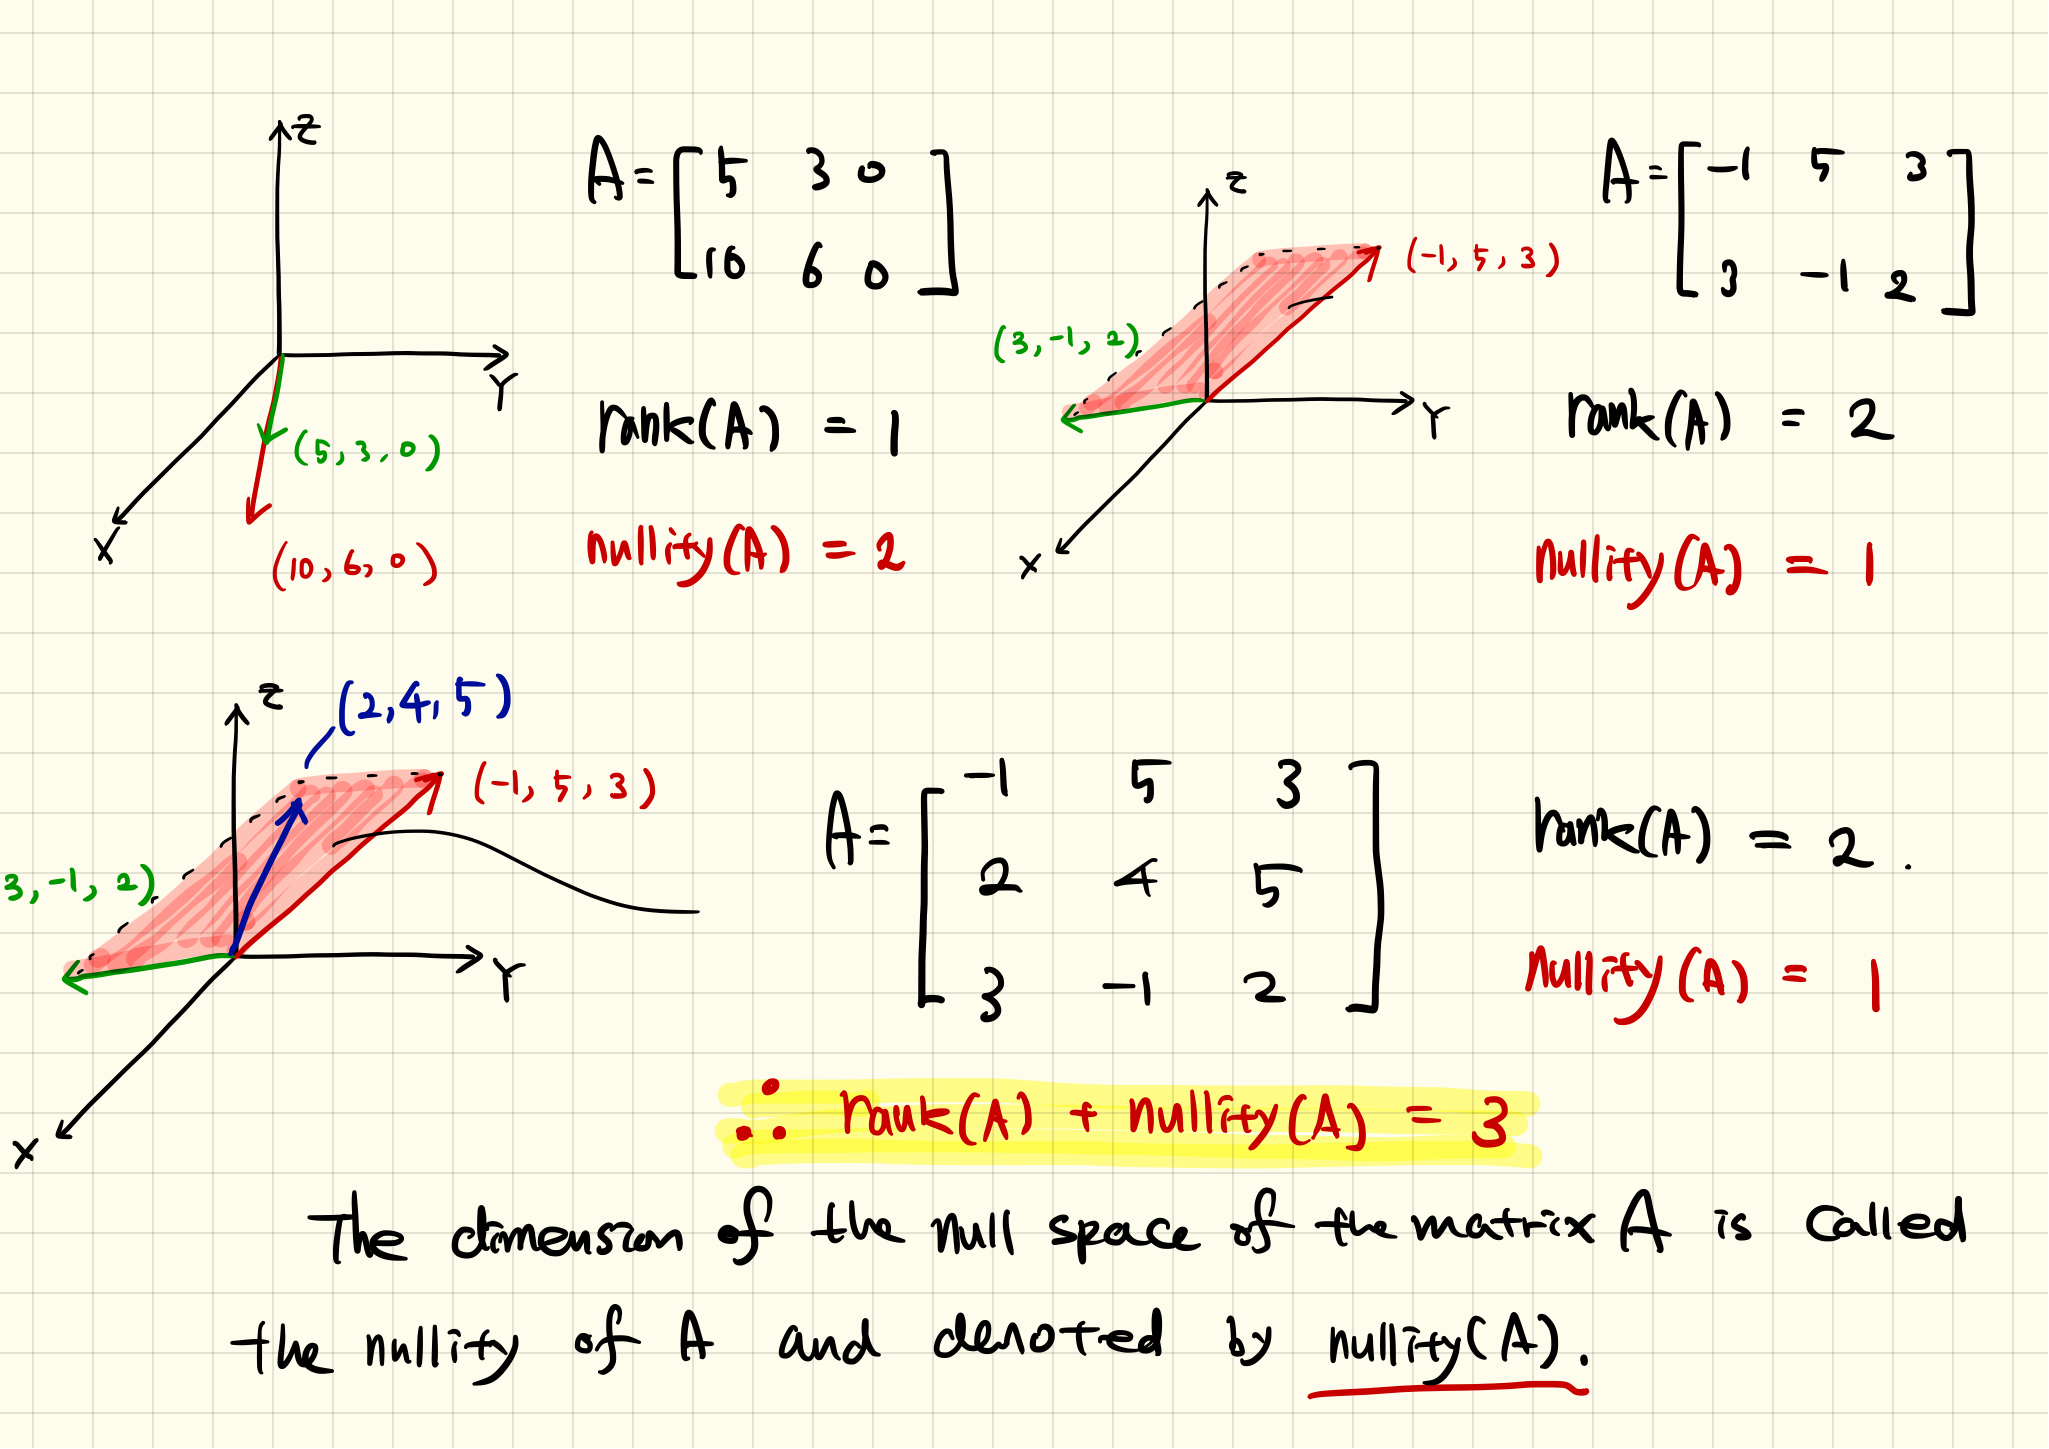 Z
A = [ 5 3 0
10 6 0 ]
Y
X
(5, 3, 0)
(10, 6, 0)
rank(A) = 1
nullity(A) = 2
Z
(-1, 5, 3)
(3, -1, 2)
Y
X
A = [ -1 5 3
3 -1 2 ]
rank(A) = 2
nullity(A) = 1
Z
(2, 4, 5)
(-1, 5, 3)
3, -1, 2)
Y
X
A = [ -1 5 3
2 4 5
3 -1 2 ]
rank(A) = 2.
nullity(A) = 1
∴ rank(A) + nullity(A) = 3
The dimension of the null space of the matrix A is called
the nullity of A and denoted by nullity(A).